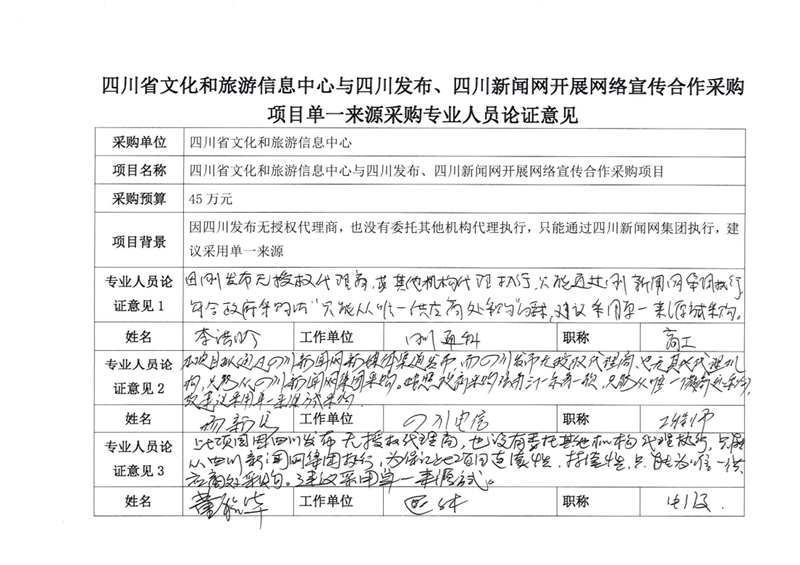 四川省文化和旅游信息中心与四川发布、四川新闻网开展网络宣传合作采购
项目单一来源采购专业人员论证意见
采购单位 四川省文化和旅游信息中心
项目名称 四川省文化和旅游信息中心与四川发布、四川新闻网开展网络宣传合作采购项目
采购预算 45 万元
项目背景 因四川发布无授权代理商，也没有委托其他机构代理执行，只能通过四川新闻网集团执行，建
议采用单一来源
专业人员论 因四川发布无授权代理商，或其他机构代理执行，只能通过四川新闻网集团执行
证意见 1 符合政府采购法“只能从唯一供应商处采购”，建议采用单一来源方式采购。
姓名 工作单位 职称 高工
专业人员论 新媒体渠道发布，而四川发布无授权代理商
证意见 2 只能从四川新闻网集团采购。只能从唯一供应商处采购
建议采用单一来源方式采购
姓名 工作单位 四川电信 职称 工程师
专业人员论 此项目因四川发布无授权代理商，也没有委托其他机构代理执行，只能
证意见 3 从四川新闻网集团执行，为保证此项目连续性，只能为唯一供
应商处采购。建议采用单一来源方式。
姓名 工作单位 职称